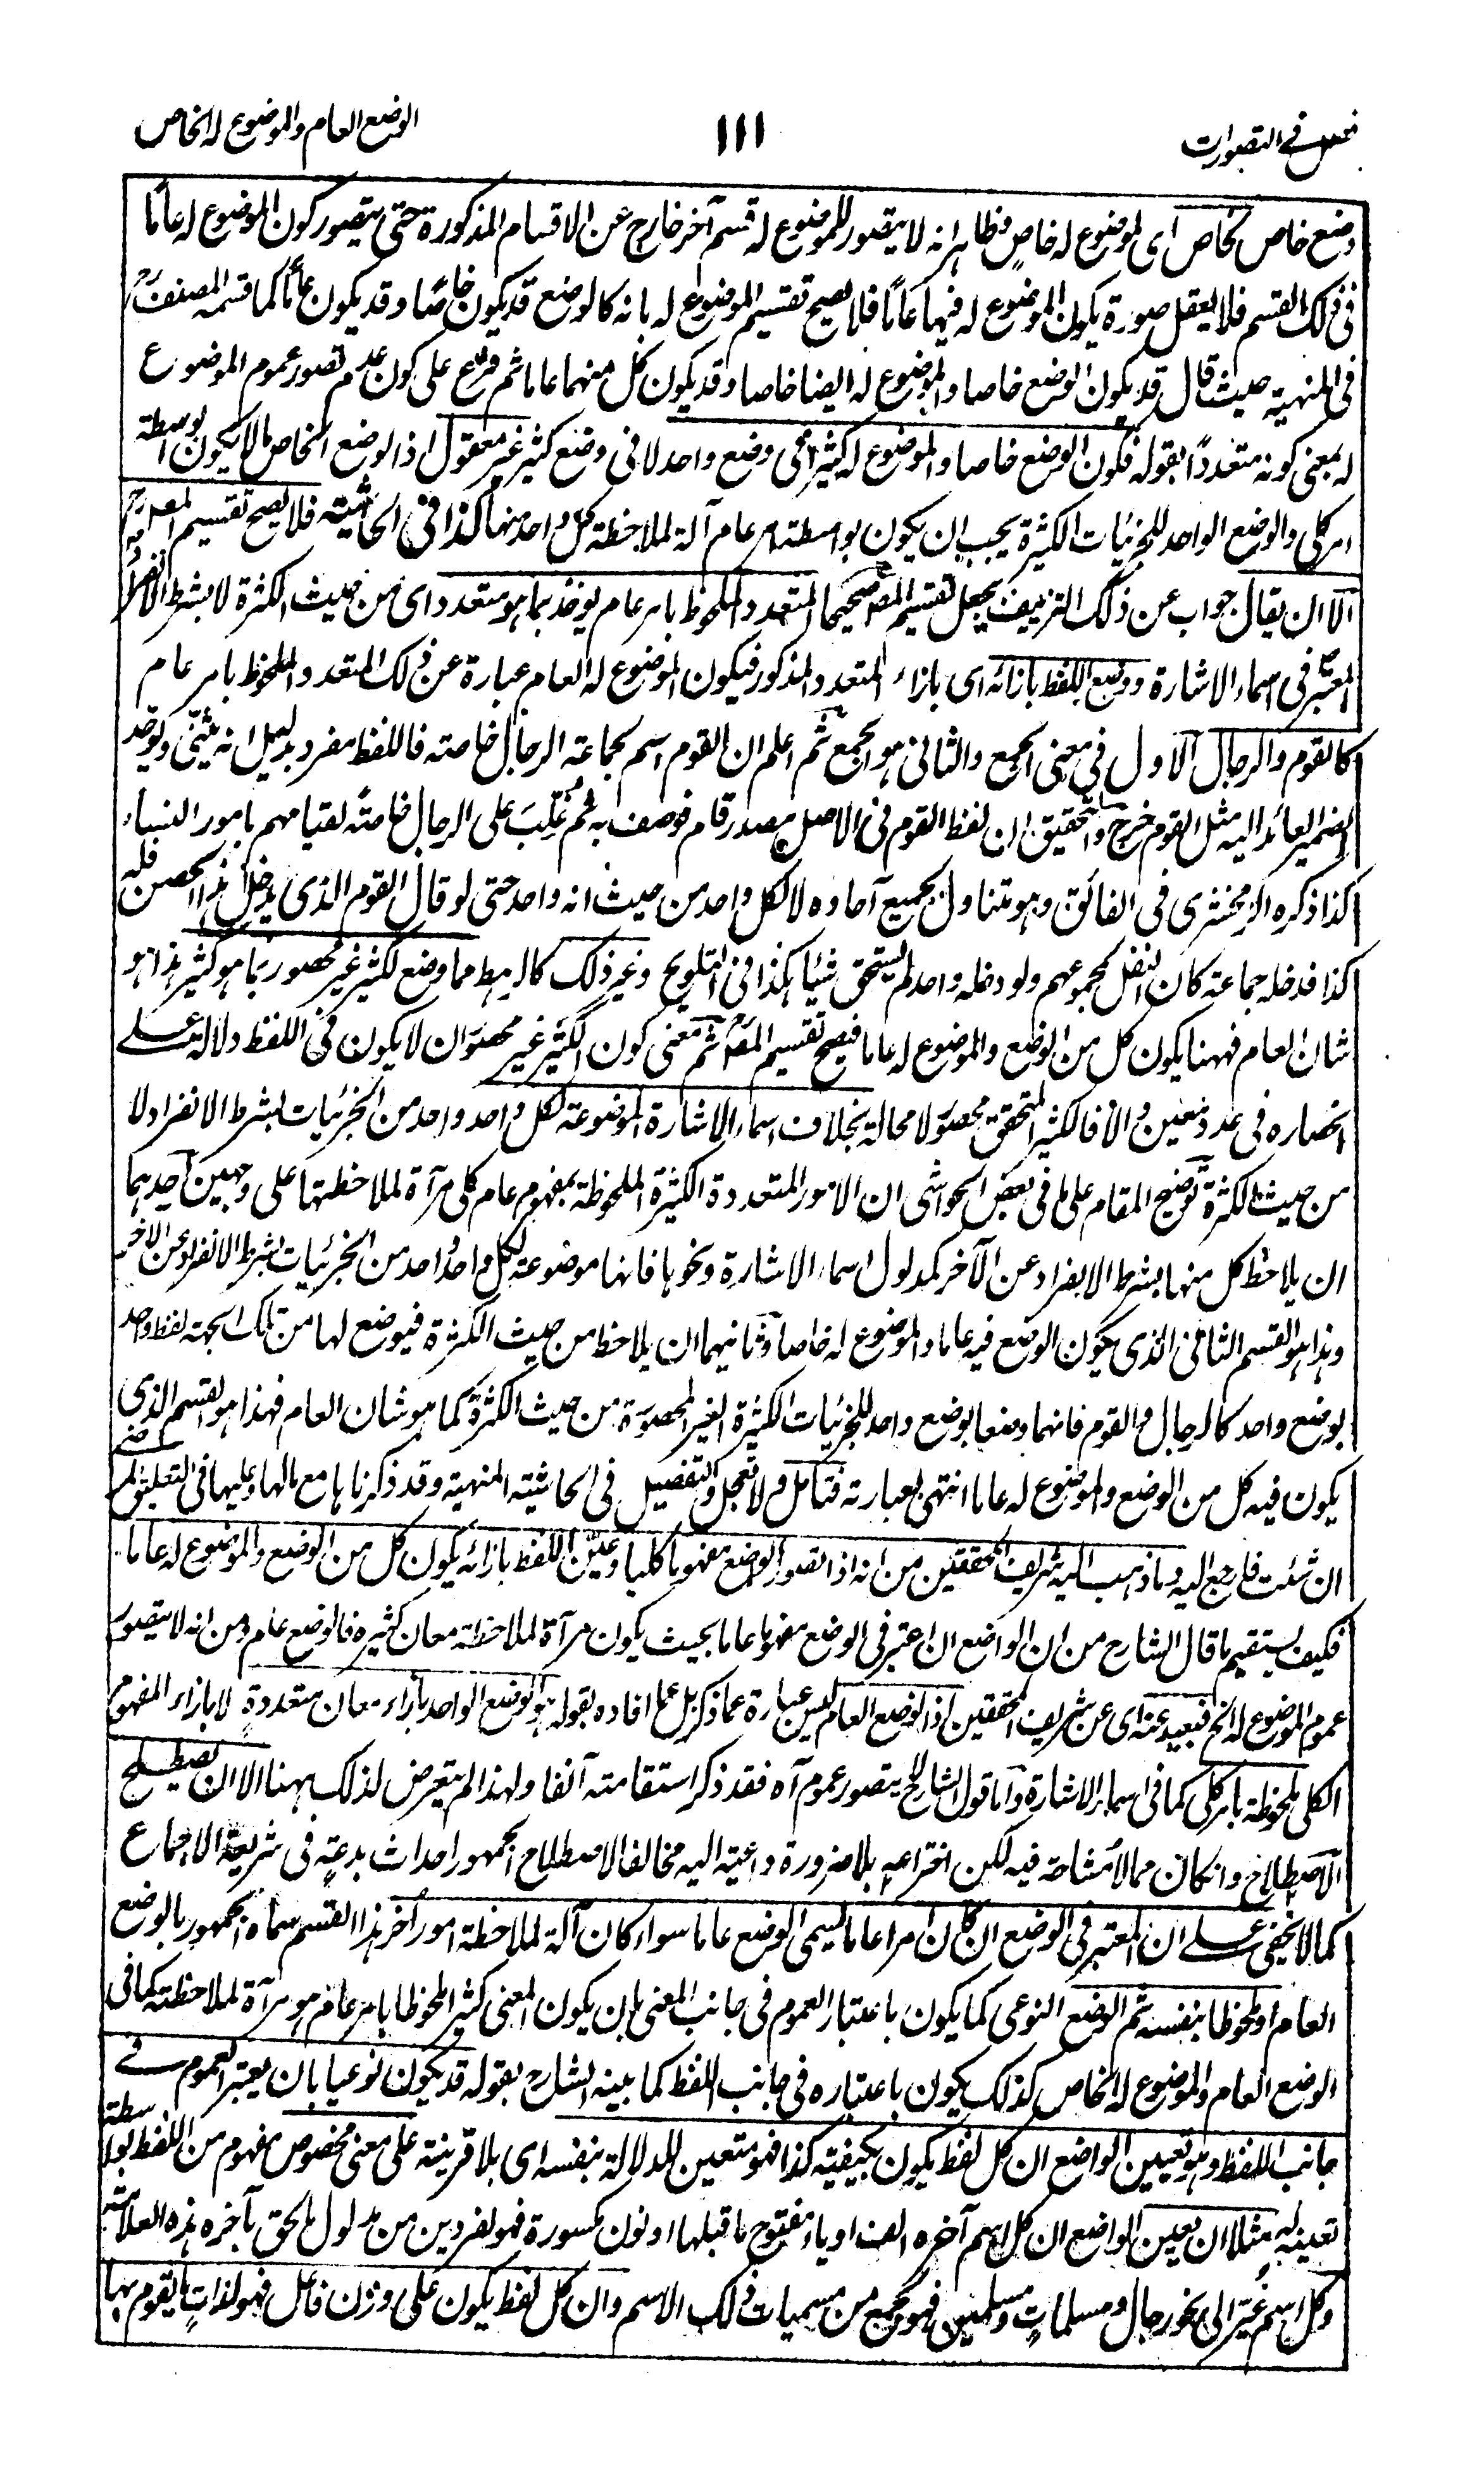 فصل في التصورات
١١١
الوضع العام والموضوع له الخاص
وضع خاص لخاص اى لموضوع له خاص فظاهر انه لا يتصور للموضوع له قسم آخر خارج عن الاقسام المذكورة حتى يتصور كون الموضوع له عاما
فى ذلك القسم فلا يعقل صورة يكون الموضوع له فيها عامًا فلا يصح تقسيم الموضوع له بانه كالوضع قد يكون خاصًا وقد يكون عامًا كما قسمه المصنف
فى المنهية حيث قال قد يكون الوضع خاصا والموضوع له ايضا خاصا وقد يكون كل منهما عاما ثم فرع على كون عدم تصور عموم الموضوع
له بمعنى كونه متعددًا بقوله فكون الوضع خاصا والموضوع له كثيرا فى وضع واحد لا فى وضع كثير غير معقول اذ الوضع الخاص ما لا يكون بوسطة
امر كلى والوضع الواحد للجزئيات الكثيرة يجب ان يكون بواسطة امر عام آلة لملاحظة كل واحد منها كذا فى الحاشية فلا يصح تقسيم المص
الا ان يقال جواب عن ذلك التزييف بجعل تقسيم المص صحيحا المتعدد الملحوظ بامر عام يوخذ بما هو متعدد اى من حيث الكثرة لا بشرط الانفراد
المعتبر فى اسماء الاشارة ووضع اللفظ بازائه اى بازاء المتعدد المذكور فيكون الموضوع له العام عبارة عن ذلك المتعدد الملحوظ بامر عام
كالقوم والرجال الاول فى معنى الجمع والثانى هو الجمع ثم اعلم ان القوم اسم لجماعة الرجال خاصة فاللفظ مفرد بدليل انه يثنى ويوحد
الضمير العائد اليه مثل القوم خرج والتحقيق ان لفظ القوم فى الاصل مصدر قام فوصف به ثم غلب على الرجال خاصةً لقيامهم بامور النساء
كذا ذكره الزمخشرى فى الفائق وهو متناول لجميع آحاده لا لكل واحد من حيث انه واحد حتى لو قال القوم الذى يدخل هذا الحصن فله
كذا فدخله جماعة كان النفل لمجموعهم ولو دخله واحد لم يستحق شيئا هكذا فى التلويح وغير ذلك كالرهط مما وضع لكثير غير محصور بما هو كثير هذا هو
شان العام فههنا يكون كل من الوضع والموضوع له عاما فيصح تقسيم المص ثم معنى كون الكثير غير محصور ان لا يكون فى اللفظ دلالة على
انحصاره فى عدد معين والا فالكثير المتحقق محصور لا محالة بخلاف اسماء الاشارة الموضوعة لكل واحد واحد من الجزئيات بشرط الانفراد لا
من حيث الكثرة توضيح المقام على ما فى بعض الحواشى ان الامور المتعددة الكثيرة الملحوظة بمفهوم عام كلى مرآة لملاحظتها على وجهين احدهما
ان يلاحظ كل منها بشرط الانفراد عن الآخر كمدلول اسماء الاشارة ونحوها فانها موضوعة لكل واحد واحد من الجزئيات بشرط الانفراد عن الاخر
وهذا هو القسم الثانى الذى يكون الوضع فيه عاما والموضوع له خاصا وثانيهما ان يلاحظ من حيث الكثرة فيوضع لها من تلك الجهة لفظ واحد
بوضع واحد كالرجال والقوم فانهما وضعا بوضع واحد للجزئيات الكثيرة الغير المحصورة من حيث الكثرة كما هو شان العام فهذا هو القسم الذى
يكون فيه كل من الوضع والموضوع له عاما انتهى بعبارته فتامل ولا تعجل والتفصيل فى الحاشية المنهية وقد ذكرناها مع مالها وعليها فى التعليق
ان شئت فارجع اليه وما ذهب اليه شريف المحققين من انه اذا تصور الواضع مفهوما كليا وعين اللفظ بازائه يكون كل من الوضع والموضوع له عاما
فكيف يستقيم ما قال الشارح من ان الواضع ان اعتبر فى الوضع مفهوما عاما بحيث يكون مرآة لملاحظة معان كثيرة فالوضع عام ومن انه لا يتصور
عموم الموضوع له الخ فبعيد عنه اى عن شريف المحققين اذ الوضع العام ليس عبارة عما ذكر بل عما افاده بقوله هو الوضع الواحد بازاء معان متعددة لا بازاء المفهوم
الكلى ملحوظة بامر كلى كما فى اسماء الاشارة واما قول الشارح لا يتصور عموم آه فقد ذكر استقامته آنفا ولهذا لم يتعرض لذلك ههنا الا ان يصطلح
الاصطلاح وانكان مما لا مشاحة فيه لكن اختراعه بلا ضرورة داعية اليه مخالفا لاصطلاح الجمهور احداث بدعة فى شريعة الاجماع
كما لا يخفى على ان المعتبر فى الوضع ان كان امرا عاما يسمى الوضع عاما سواء كان آلة لملاحظة امور أخر هذا القسم سماه الجمهور بالوضع
العام او ملحوظا بنفسه ثم الوضع النوعى كما يكون باعتبار العموم فى جانب المعنى بان يكون المعنى كثيرا ملحوظا بامر عام هو مرآة لملاحظته كما فى
الوضع العام والموضوع له الخاص كذلك يكون باعتباره فى جانب اللفظ كما بينه الشارح بقوله قد يكون نوعيا بان يعتبر العموم فى
جانب اللفظ وهو تعيين الواضع ان كل لفظ يكون بكيفية كذا فهو متعين للدلالة بنفسه اى بلا قرينة على معنى مخصوص مفهوم من اللفظ بواسطة
تعينه له مثلا ان يعين الواضع ان كل اسم آخره الف او ياء مفتوح ما قبلها او نون مكسورة فهو لفردين من مدلول ما لحق بآخره هذه العلامة
وكل اسم غير الى نحو رجال ومسلمات ومسلمين فهو لجمع من مسميات ذلك الاسم وان كل لفظ يكون على وزن فاعل فهو لذات ما يقوم بها